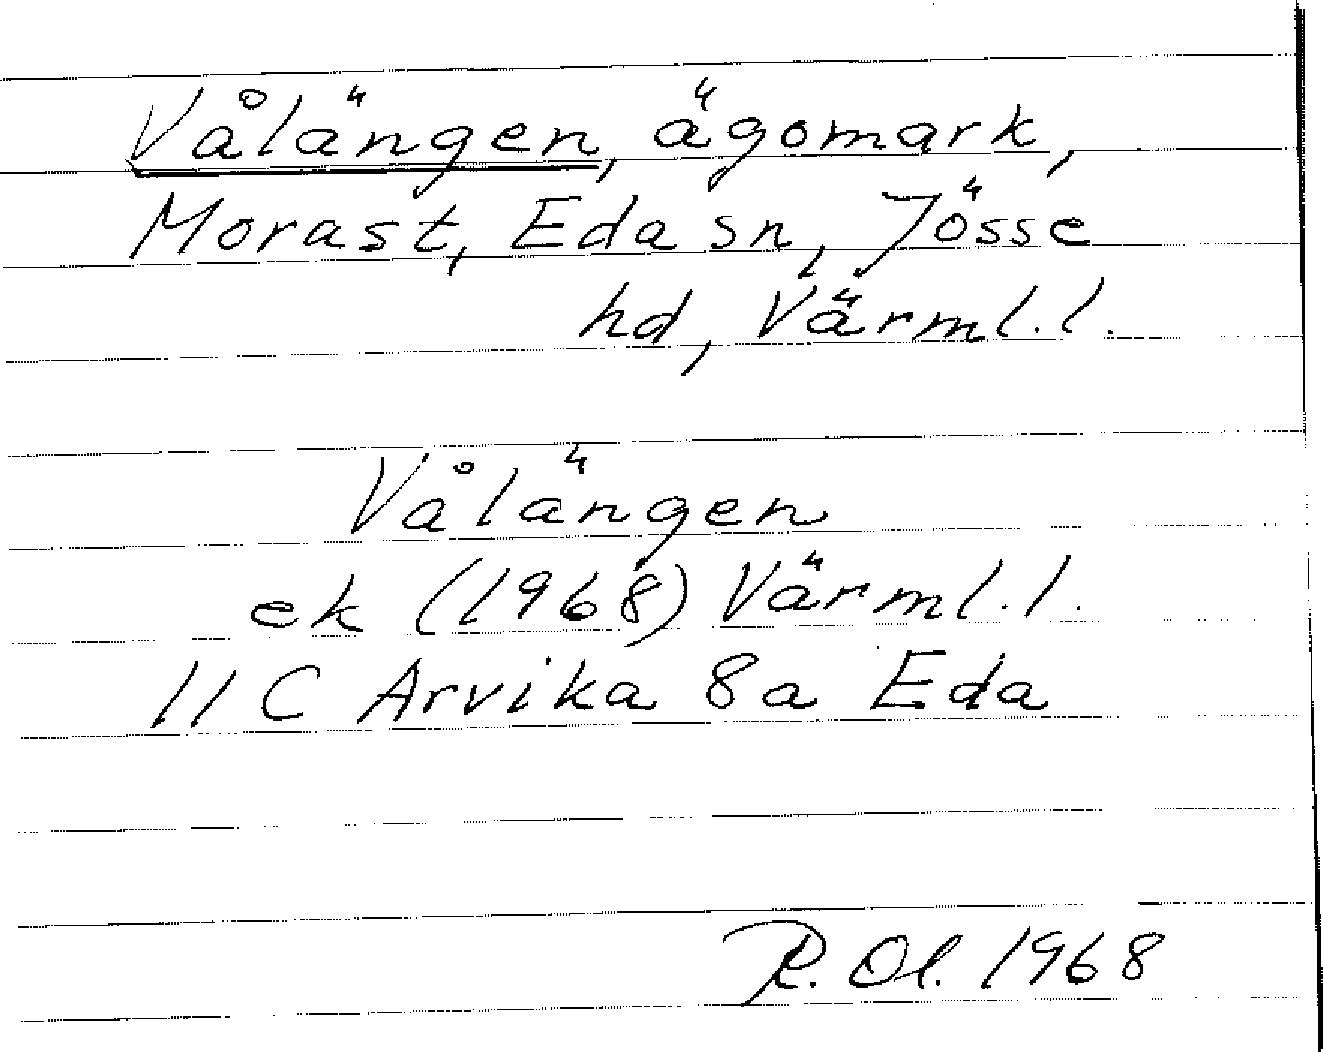 Vålängen, ägomark,
Morast, Eda sn, Jösse
hd, Värml.l.
Vålängen
ek (1968) Värml.l.
11 C Arvika 8a Eda
R. Ol. 1968